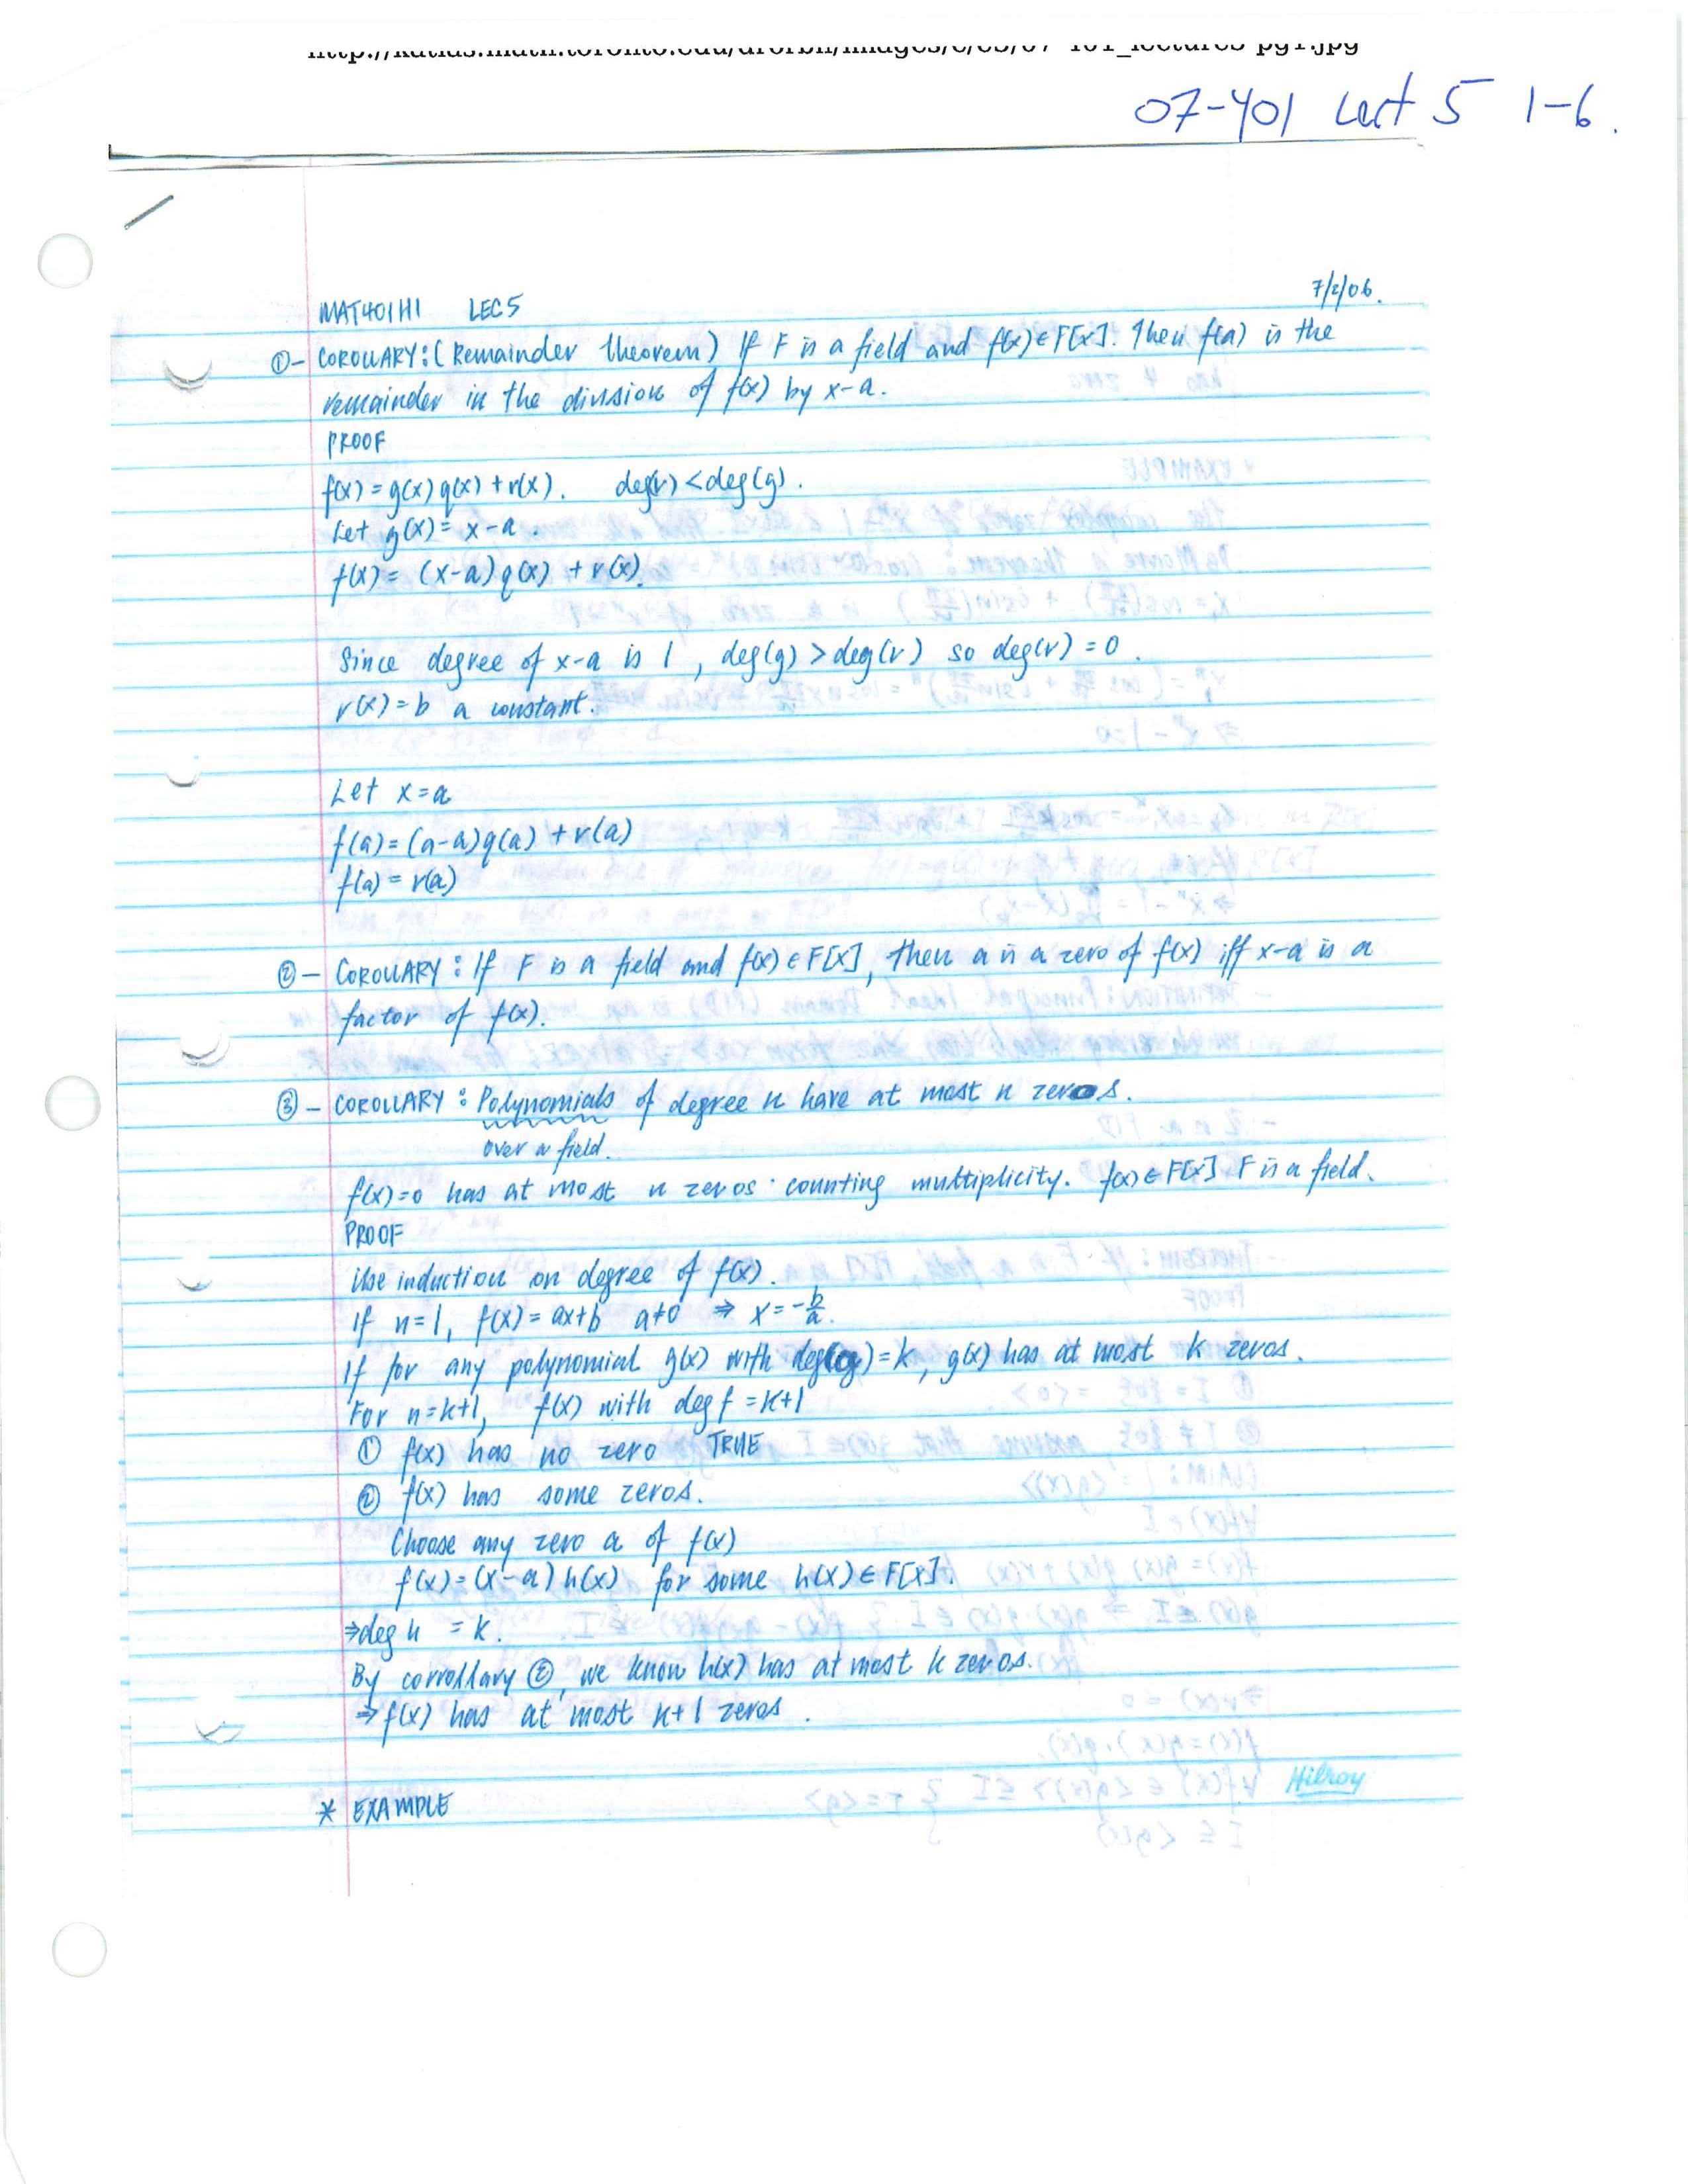 07-401 Lect 5 1-6.
MAT401H1 LEC5
7/2/06.
①- COROLLARY: (Remainder theorem) If F is a field and f(x)∈F[x]. Then f(a) is the
remainder in the division of f(x) by x-a.
PROOF
f(x) = g(x)q(x) + r(x). deg(r) < deg(g).
Let g(x) = x-a.
f(x) = (x-a)q(x) + r(x).
Since degree of x-a is 1, deg(g) > deg(r) so deg(r) = 0.
r(x) = b a constant.
Let x=a
f(a) = (a-a)q(a) + r(a)
f(a) = r(a)
②- COROLLARY: If F is a field and f(x)∈F[x], then a is a zero of f(x) iff x-a is a
factor of f(x).
③- COROLLARY: Polynomials of degree n have at most n zeros.
over a field.
f(x)=0 has at most n zeros counting multiplicity. f(x)∈F[x] F is a field.
PROOF
Use induction on degree of f(x).
If n=1, f(x) = ax+b a≠0 ⇒ x = -b/a.
If for any polynomial g(x) with deg(g)=k, g(x) has at most k zeros.
For n=k+1, f(x) with deg f = k+1
① f(x) has no zero TRUE
② f(x) has some zeros.
Choose any zero a of f(x)
f(x) = (x-a)h(x) for some h(x)∈F[x].
⇒deg h = k.
By corrollary ②, we know h(x) has at most k zeros.
⇒ f(x) has at most k+1 zeros.
Hilroy
* EXAMPLE